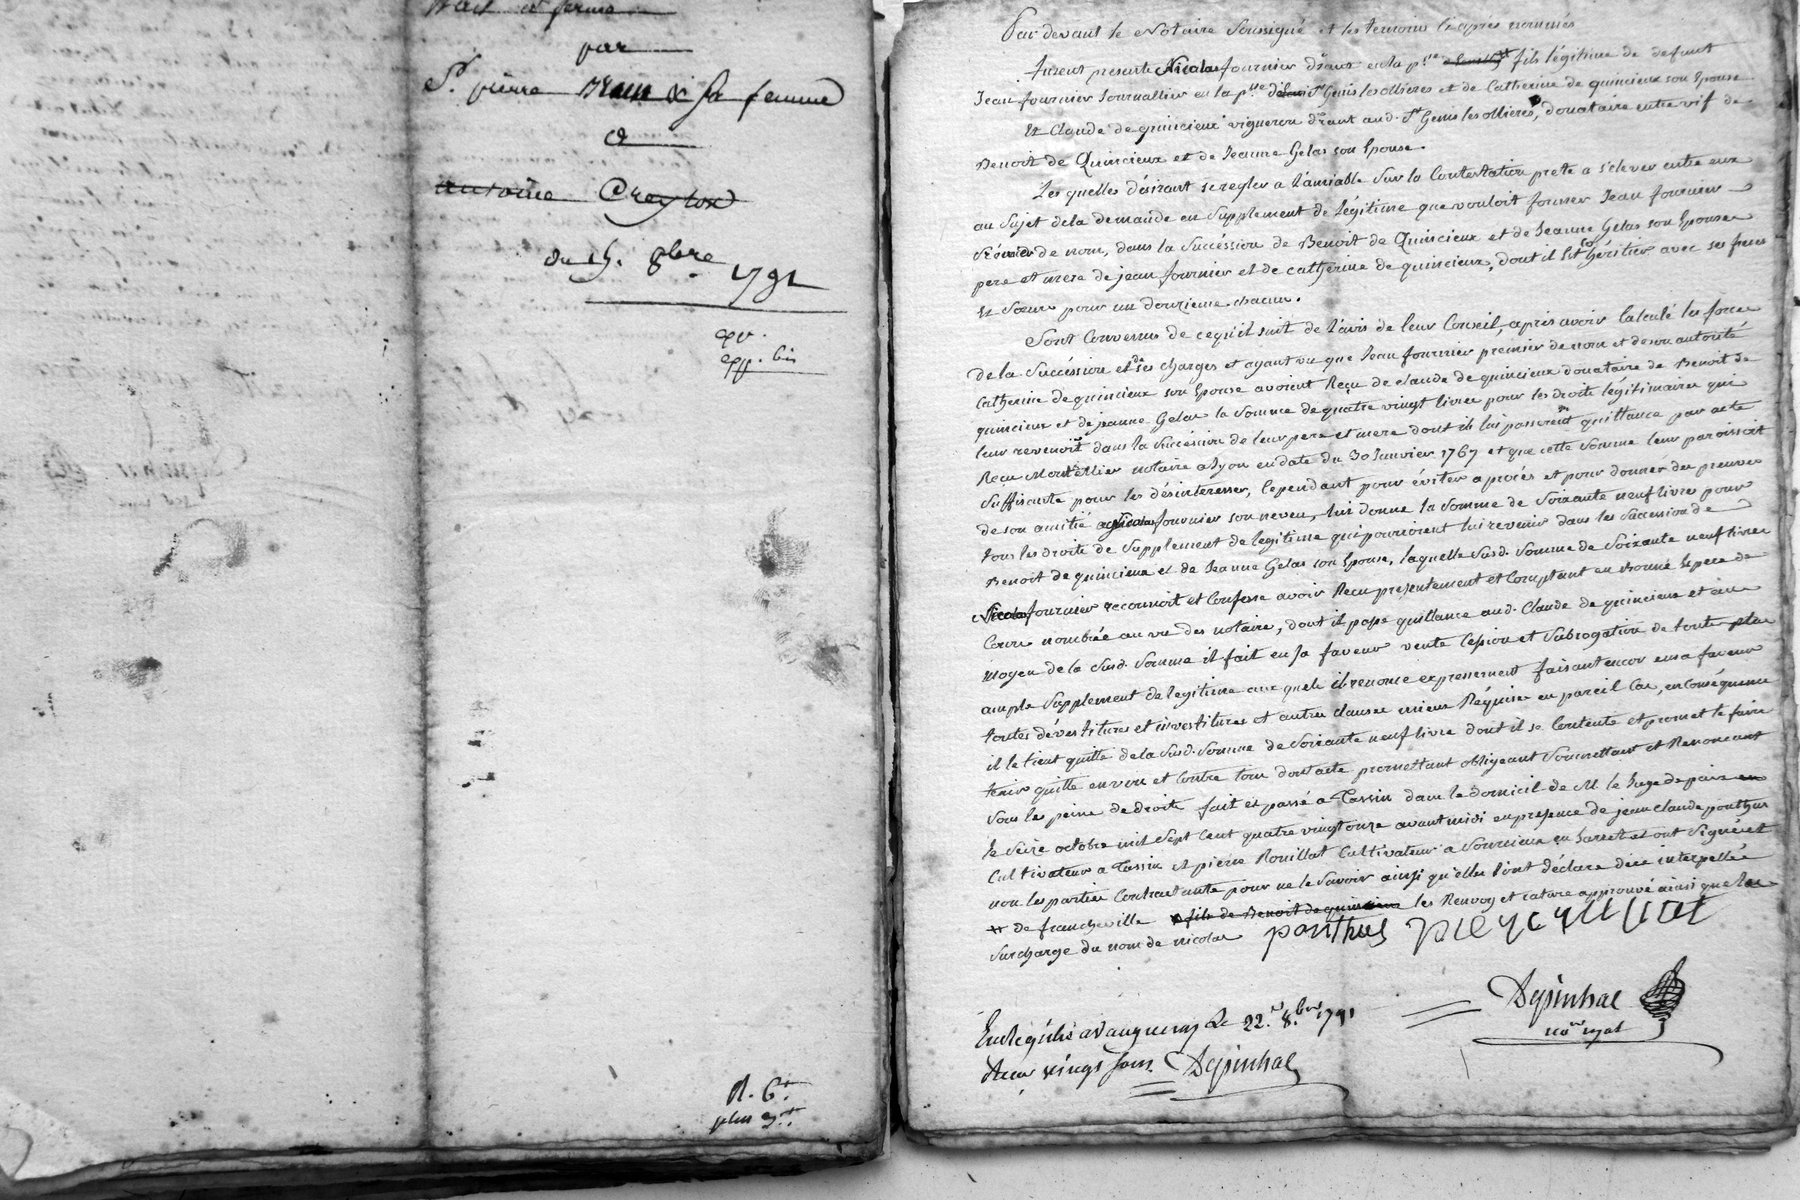 Bail a ferme
par
Sr. pierre & sa femme
a
antoine
du 15. 8bre 1791
exp.
exp. bis
R. 6#
plus 3#
Par devant le Notaire Soussigné et les temoins ci apres nommés
furent presents Nicolas fournier dt. en la psse fils légitime de defunt
Jean fournier Journallier en la psse de St. Genis les ollieres et de Catherine de quincieux son Epouse
Et Claude de quincieux vigneron dt. aud. St. Genis les ollieres, donataire entre vif de
Benoit de Quincieux et de Jeanne Gelas son Epouse.
Les quelles désirant se regler a l'amiable Sur la Contestation prete a s'elever entre eux
au Sujet de la demande en Supplement de légitime que vouloit former Jean fournier
second de nom, dans la Succéssion de Benoit de Quincieux et de Jeanne Gelas son Epouse
pere et mere de jean fournier et de catherine de quincieux, dont il est héritier avec ses freres
Et Soeurs pour un douzieme chacun.
Sont Convenus de ce qu'il suit de l'avis de leur Conseil, après avoir Calculé les forces
de la Succéssion et de ses charges et ayant vu que Jean fournier premier de nom et de son autorité
Catherine de quincieux son Epouse avoient Reçu de claude de quincieux donataire de Benoit de
quincieux et de jeanne Gelas la Somme de quatre vingt livres pour les droits légitimaires qui
leur revenoit dans la Succéssion de leur pere et mere dont ils lui passerent quittance par acte
Reçu notaire a Lyon en date du 30 Janvier 1767 et que cette Somme leur paroissoit
Suffisante pour les désinteresser, Cependant pour éviter a procés et pour donner des preuves
de son amitié a Nicolas fournier son neveu, lui donne la Somme de Soixante neuf livres pour
tous les droits de Supplement de legitime qui pourroient lui revenir dans les Succession de
Benoit de quincieux et de Jeanne Gelas son Epouse, laquelle Susd. Somme de Soixante neuf livres
Nicolas fournier reconnoit et Confesse avoir Reçu presentement et Comptant en bonne Espece de
Cours nombrée au vu des notaire, dont il passe quittance aud. Claude de quincieux et au
moyen de la Susd. Somme il fait en sa faveur vente Cession et Subrogation de toute plus
ample Supplement de legitime aux quels il renonce expressement faisant encor en sa faveur
toutes dévestitures et investitures et autres clauses mieux Réquise en pareil Cas, en Conséquence
il le tient quitte de la Susd. Somme de Soixante neuf livre dont il se Contente et promet le faire
tenir quitte envers et Contre tous dont acte promettant obligeant Soumettant et Renonceant
Sous les peine de droits fait et passé a Tassin dans le domicil de M le Juge de paix
le Seize octobre mil Sept Cent quatre vingt onze avant midi en presence de jean Claude ponthus
Cultivateur a Tassin et pierre Rouillat Cultivateur a Sourcieux en Jarrest et ont Signé et
non les parties Contractante pour ne le Savoir ainsi qu'elles l'ont déclaré de ce interpellée
de francheville fils de Benoit de quincieux les Renvoy et rature approuvé ainsi que la
Surcharge du nom de nicolas ponthus
Dépinhac
nore royal
Enrégistré a Vaugneray Le 22e. 8bre 1791
Recu vingt sous Dépinhac